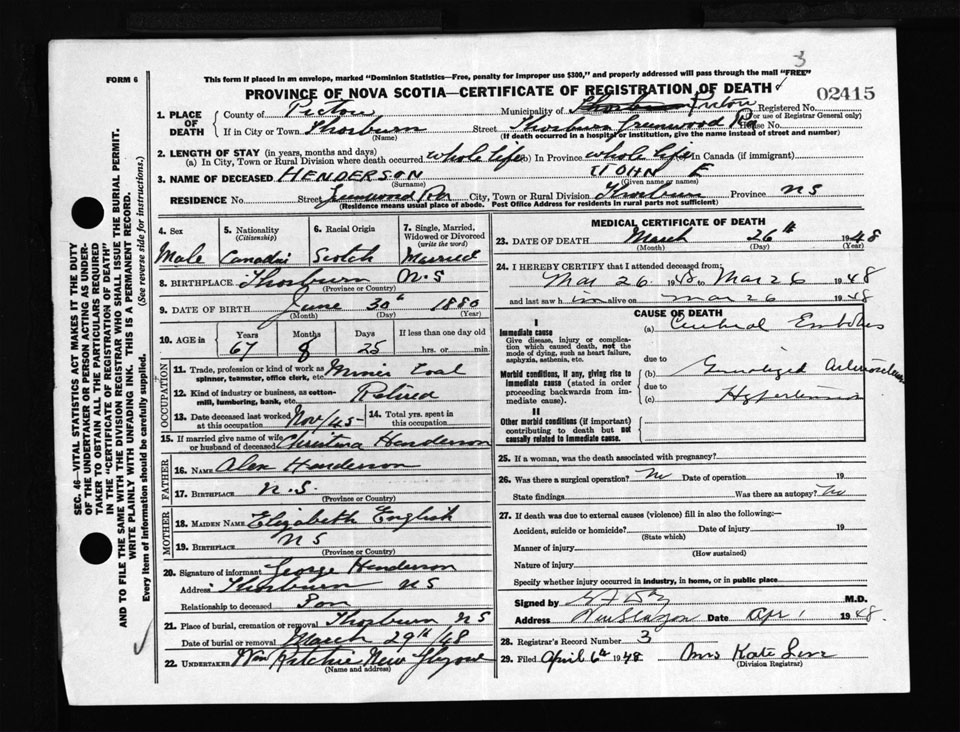 3
FORM 6
This form if placed in an envelope, marked "Dominion Statistics—Free, penalty for improper use $300," and properly addressed will pass through the mail "FREE"
PROVINCE OF NOVA SCOTIA—CERTIFICATE OF REGISTRATION OF DEATH
02415
1. PLACE OF DEATH
County of Pictou
Municipality of Pictou Registered No.
(For use of Registrar General only)
If in City or Town Thorburn Street Thorburn Greenwood Rd House No.
(Name) (If death occurred in a hospital or institution, give the name instead of street and number)
2. LENGTH OF STAY (in years, months and days)
(a) In City, Town or Rural Division where death occurred whole life (b) In Province whole life (c) In Canada (if immigrant)
3. NAME OF DECEASED HENDERSON JOHN E
(Surname) (Given name or names)
RESIDENCE No. Street Rd City, Town or Rural Division Thorburn Province NS
(Residence means usual place of abode. Post Office Address for residents in rural parts not sufficient)
4. Sex
Male
5. Nationality
(Citizenship)
6. Racial Origin
Scotch
7. Single, Married, Widowed or Divorced
(write the word)
Married
8. BIRTHPLACE Thorburn N.S
(Province or Country)
9. DATE OF BIRTH June 30th 1880
(Month) (Day) (Year)
10. AGE in
Years Months Days If less than one day old
67 8 25 hrs. or min.
OCCUPATION
11. Trade, profession or kind of work as Miner Coal
spinner, teamster, office clerk, etc.
12. Kind of industry or business, as cotton-mill, lumbering, bank, etc. Retired
13. Date deceased last worked at this occupation Nov/45
14. Total yrs. spent in this occupation
15. If married give name of wife or husband of deceased Christena Henderson
FATHER
16. NAME Alex Henderson
17. BIRTHPLACE N.S.
MOTHER
18. MAIDEN NAME Elizabeth English
19. BIRTHPLACE N S
(Province or Country)
20. Signature of informant George Henderson
Address Thorburn N S
Relationship to deceased Son
21. Place of burial, cremation or removal Thorburn N S
Date of burial or removal March 29th/48
22. UNDERTAKER Wm Ritchie New Glasgow
(Name and address)
MEDICAL CERTIFICATE OF DEATH
23. DATE OF DEATH March 26th 1948
(Month) (Day) (Year)
24. I HEREBY CERTIFY that I attended deceased from
Mar 26 1948 to Mar 26 1948
and last saw him alive on Mar 26 1948
CAUSE OF DEATH
I
Immediate cause
Give disease, injury or complication which caused death, not the mode of dying, such as heart failure, asphyxia, asthenia, etc.
(a) Cerebral Embolus
due to
Morbid conditions, if any, giving rise to immediate cause (stated in order proceeding backwards from immediate cause).
(b) Generalized Arteriosclerosis
due to
(c) Hypertension
II
Other morbid conditions (if important) contributing to death but not causally related to immediate cause.
25. If a woman, was the death associated with pregnancy?
26. Was there a surgical operation? No Date of operation 19
State findings Was there an autopsy? No
27. If death was due to external causes (violence) fill in also the following:—
Accident, suicide or homicide? Date of injury 19
(State which)
Manner of injury
(How sustained)
Nature of injury
Specify whether injury occurred in industry, in home, or in public place
Signed by M.D.
Address New Glasgow Date Apr 1 1948
28. Registrar's Record Number 3
29. Filed April 6th 1948 Mrs Kate
(Division Registrar)
SEC. 46—VITAL STATISTICS ACT MAKES IT THE DUTY
OF THE UNDERTAKER OR PERSON ACTING AS UNDER-
TAKER TO OBTAIN ALL THE PARTICULARS REQUIRED
IN THE "CERTIFICATE OF REGISTRATION OF DEATH"
AND TO FILE THE SAME WITH THE DIVISION REGISTRAR WHO SHALL ISSUE THE BURIAL PERMIT.
WRITE PLAINLY WITH UNFADING INK. THIS IS A PERMANENT RECORD.
Every item of information should be carefully supplied. (See reverse side for instructions.)